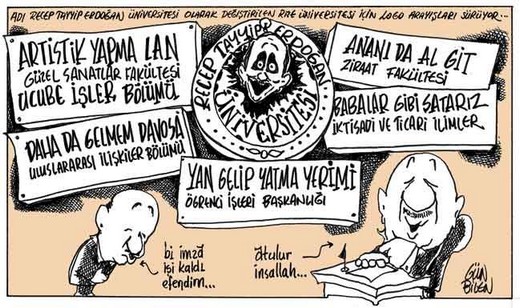 ADI RECEP TAYYİP ERDOĞAN ÜNİVERSİTESİ OLARAK DEĞİŞTİRİLEN RİZE ÜNİVERSİTESİ İÇİN LOGO ARAYIŞLARI SÜRÜYOR...
ARTİSTİK YAPMA LAN
GÜZEL SANATLAR FAKÜLTESİ
UCUBE İŞLER BÖLÜMÜ
RECEP TAYYİP ERDOĞAN
ÜNİVERSİTESİ
ANANI DA AL GİT
ZİRAAT FAKÜLTESİ
DAHA DA GELMEM DAVOSA
ULUSLARARASI İLİŞKİLER BÖLÜMÜ
BABALAR GİBİ SATARIZ
İKTİSADİ VE TİCARİ İLİMLER
YAN GELİP YATMA YERİ Mİ
ÖĞRENCİ İŞLERİ BAŞKANLIĞI
bi imza
işi kaldı
efendim...
atılır
inşallah...
GÜN